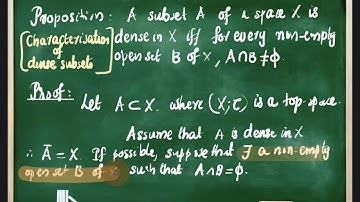 Proposition: A subset A of a space X is
[Characterisation of dense subsets] dense in X iff for every non-empty
open set B of X, A∩B≠ϕ.
Proof: Let A⊂X. where (X,τ) is a top. space.
Assume that A is dense in X
∴ Ā=X. If possible, suppose that ∃ a non-empty
open set B of X such that A∩B=ϕ.